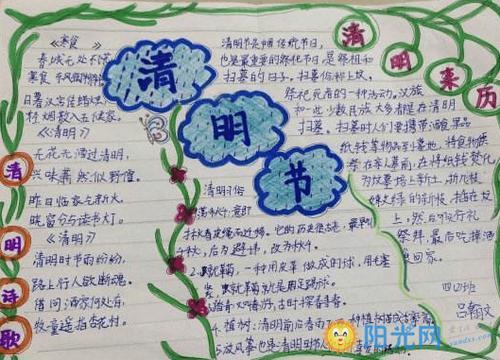 《寒食》
春城无处不飞花
寒食东风御柳斜
日暮汉宫传蜡烛
轻烟散入五侯家
《清明》
无花无酒过清明,
兴味萧然似野僧.
昨日临家乞新火,
晓窗分与读书灯.
《清明》
清明时节雨纷纷,
路上行人欲断魂.
借问酒家何处有,
牧童遥指杏花村.
清明诗歌
清明节
清明节是中国传统节日,
也是最重要的祭祀节日,是祭祖和
扫墓的日子。扫墓俗称上坟,
祭祀死者的一种活动。汉族
和一些少数民族大多都是在清明
扫墓。扫墓时人们要携带酒食果品
纸钱等物品到墓地,将食物供
祭在亲人墓前,在将纸钱焚化,
为坟墓培上新土,折几枝
嫩绿的新枝,插在坟
上,然后叩头行礼
祭拜,最后吃掉酒
食回家。
清明来历
清明习俗
2.蹴鞠,一种用皮革做成的球,用毛塞
紧,蹴鞠就是用足踢球。
4.植树:清明前后春
5.放风筝也是清明
四(2)班
阳光网